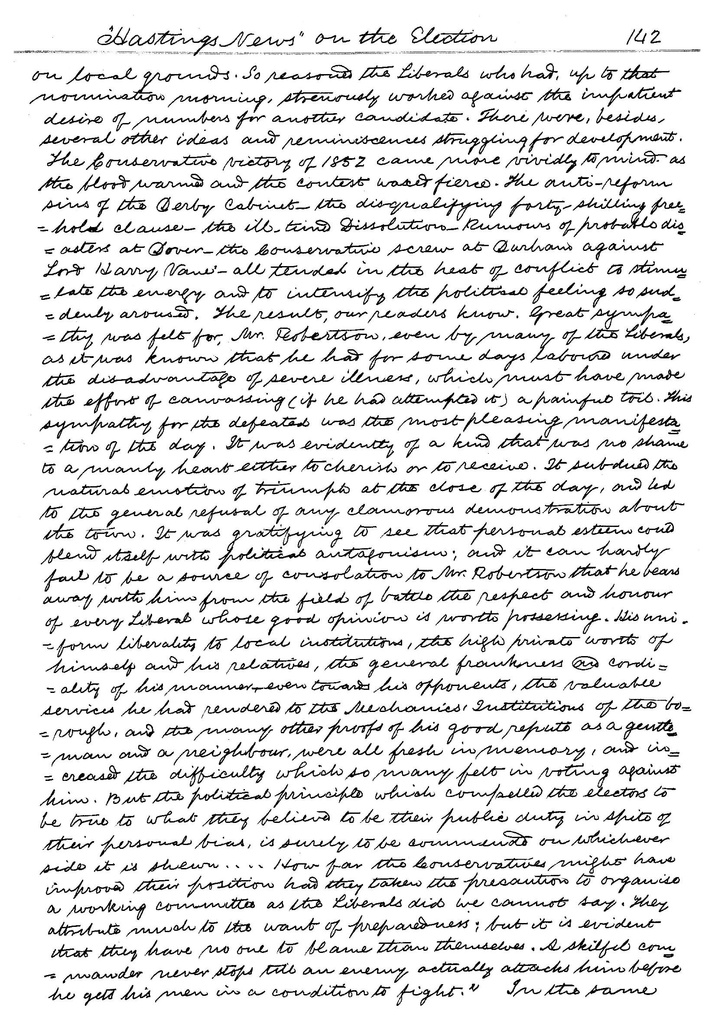 "Hastings News" on the Election 142
on local grounds. So reasoned the Liberals who had, up to that
nomination morning, strenuously worked against the impatient
desire of numbers for another candidate. There were, besides,
several other ideas and reminiscences struggling for development.
The Conservative victory of 1852 came more vividly to mind as
the blood warmed and the contest waxed fierce. The anti-reform
sins of the Derby Cabinet – the disqualifying forty-shilling free=
=hold clause – the ill-timed Dissolution – Rumours of probable dis=
=asters at Dover – the Conservative screw at Durham against
Lord Harry Vane – all tended in the heat of conflict to stimu=
=late the energy and to intensify the political feeling so sud=
=denly aroused. The result, our readers know. Great sympa=
=thy was felt for, Mr. Robertson, even by many of the Liberals,
as it was known that he had for some days laboured under
the disadvantage of severe illness, which must have made
the effort of canvassing (if he had attempted it) a painful toil. This
sympathy for the defeated was the most pleasing manifesta=
=tion of the day. It was evidently of a kind that was no shame
to a manly heart either to cherish or to receive. It subdued the
natural emotion of triumph at the close of the day, and led
to the general refusal of any clamorous demonstration about
the town. It was gratifying to see that personal esteem could
blend itself with political antagonism; and it can hardly
fail to be a source of consolation to Mr. Robertson that he bears
away with him from the field of battle the respect and honour
of every Liberal whose good opinion is worth possessing. His uni-
=form liberality to local institutions, the high private worth of
himself and his relatives, the general frankness and cordi=
=ality of his manner, even towards his opponents, the valuable
services he had rendered to the Mechanics' Institutions of the bo=
=rough, and the many other proofs of his good repute as a gentle=
=man and a neighbour, were all fresh in memory, and in=
=creased the difficulty which so many felt in voting against
him. But the political principle which compelled the electors to
be true to what they believed to be their public duty in spite of
their personal bias, is surely to be commended on whichever
side it is shewn.... How far the Conservatives might have
improved their position had they taken the precaution to organise
a working committee as the Liberals did we cannot say. They
attribute much to the want of preparedness; but it is evident
that they have no one to blame than themselves. A skilful com=
=mander never stops till an enemy actually attacks him before
he gets his men in a condition to fight." In the same